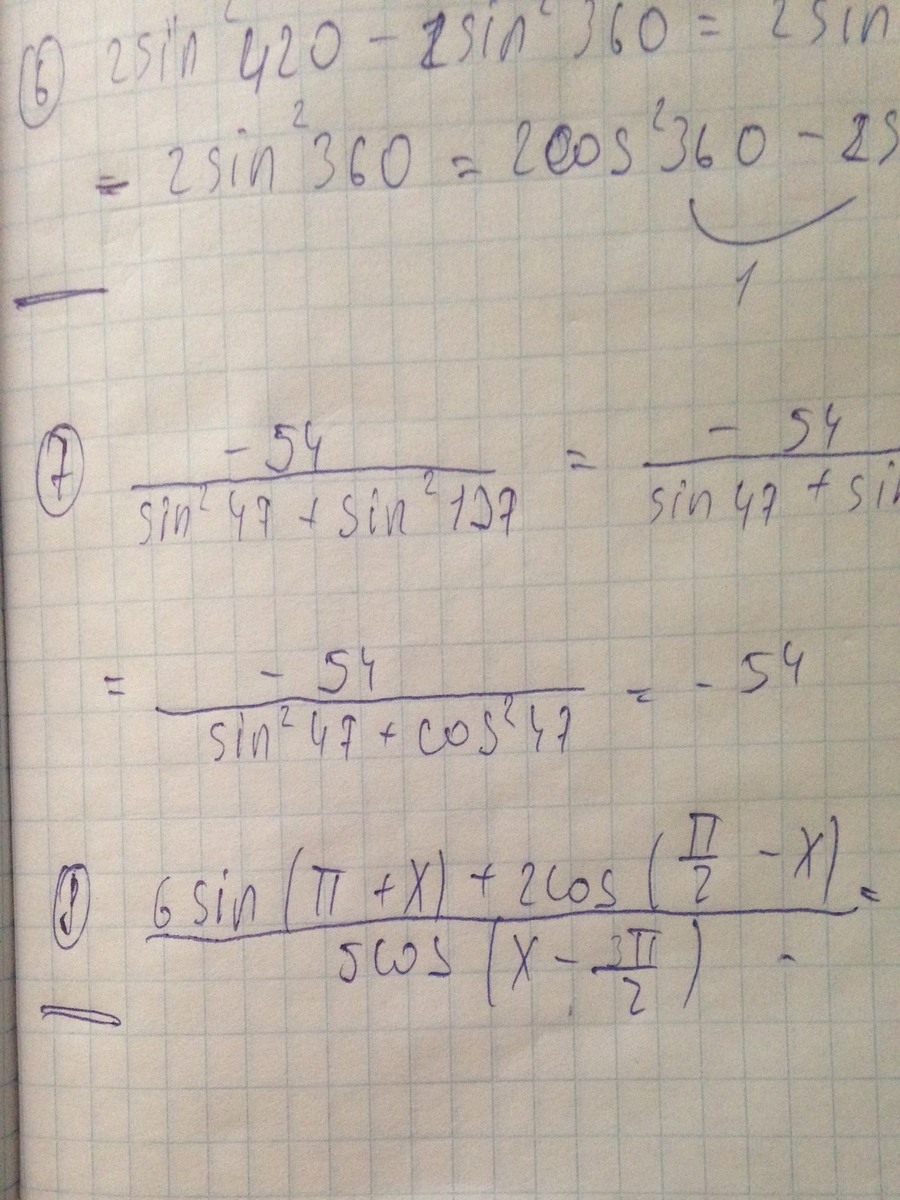 6) 2sin² 420 - 2sin² 360 = 2sin
= 2sin² 360 = 2cos² 360 - 2s
1
7) -54 / (sin² 47 + sin² 137) = - 54 / (sin 47 + sin
= - 54 / (sin² 47 + cos² 47) = - 54
8) (6 sin (π + x) + 2cos (π/2 - x)) / (5cos (x - 3π/2)) =